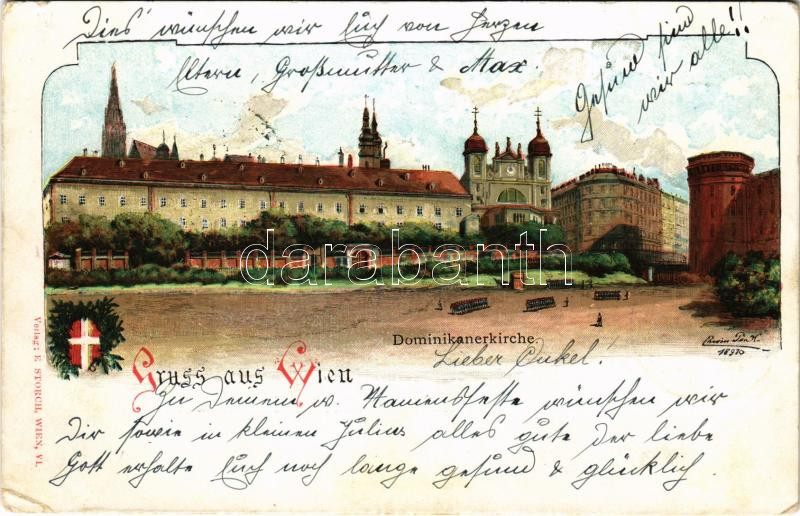 Dies wünschen wir Euch von Herzen
Eltern, Großmutter & Max.
Gesund sind
wir alle!!
darabanth
Dominikanerkirche
1897
Gruss aus Wien
Verlag: E. STORCH, WIEN, VI.
Lieber Onkel!
Zu Deinem w. Namensfeste wünschen wir
Dir sowie in kleinen Julius alles gute der liebe
Gott erhalte Euch noch lange gesund & glücklich.